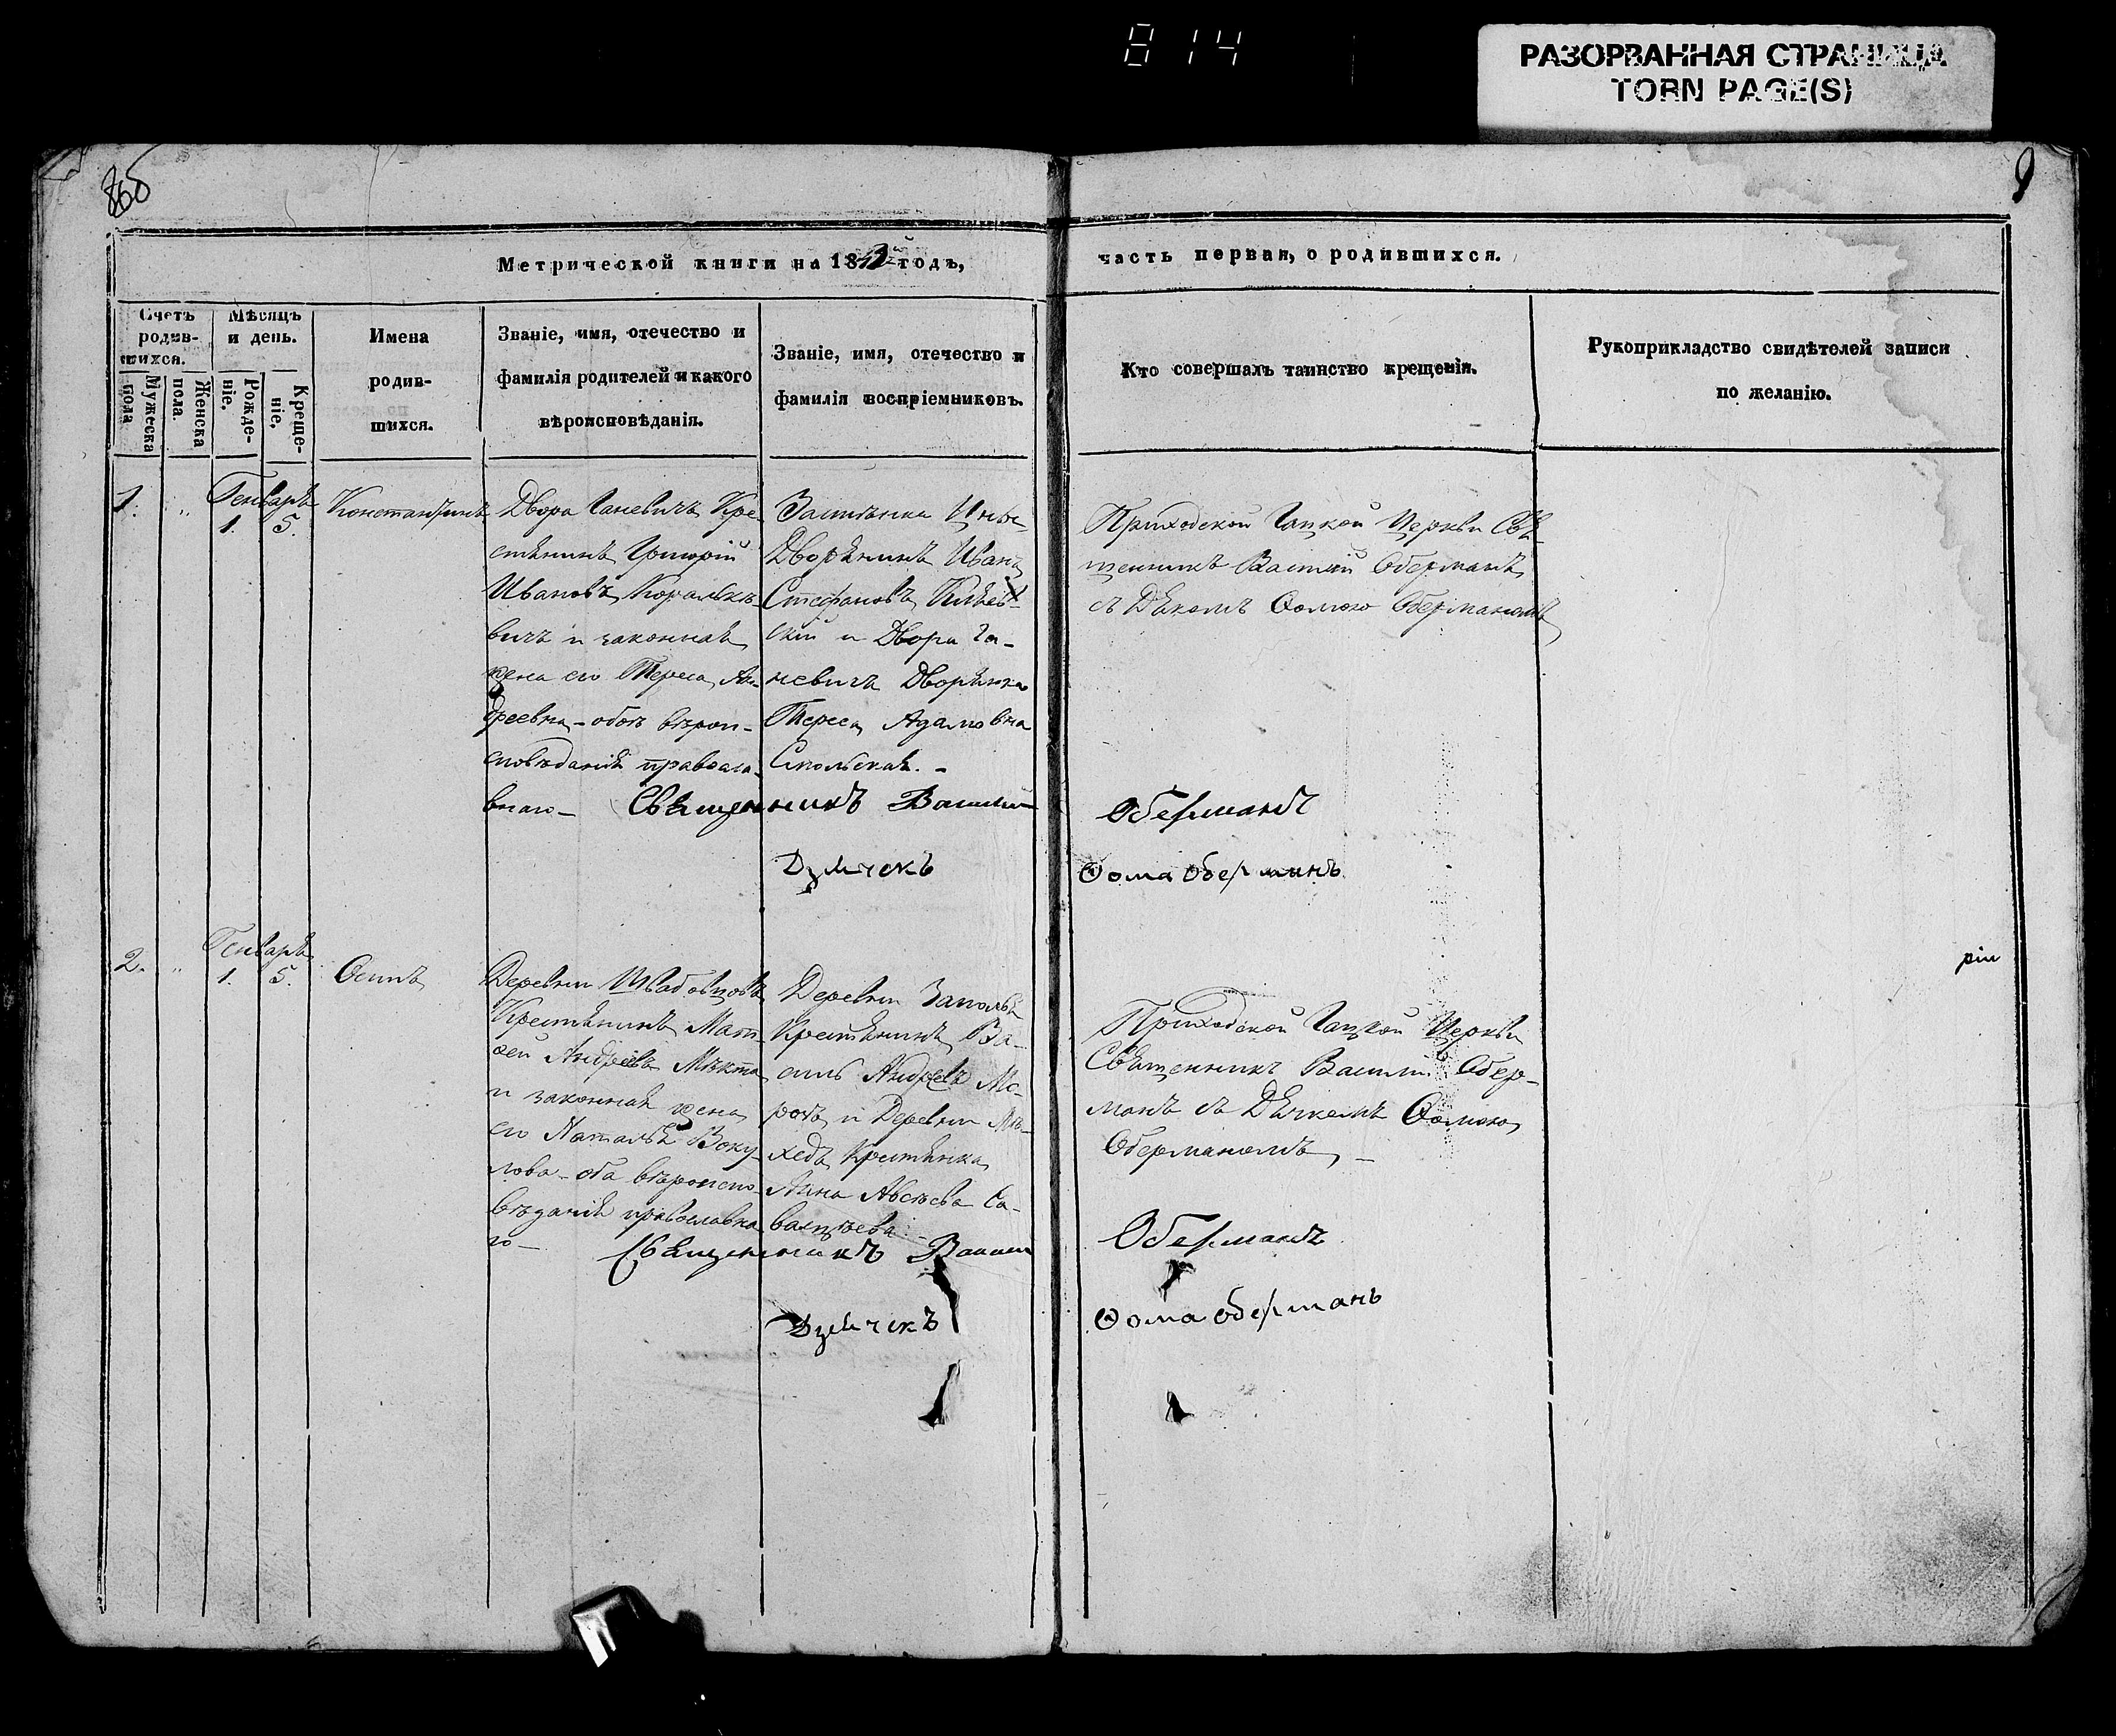 814
РАЗОРВАННАЯ СТРАНИЦА
TORN PAGE(S)
Метрической книги на 18 годъ,
часть первая, о родившихся.
Счетъ родив-шихся.
Мѣсяцъ и день.
Мужеска пола
Женска пола.
Рожде-ніе.
Креще-ніе.
Имена
родив-
шихся.
Званіе, имя, отечество и
фамилія родителей и какого
вѣроисповѣданія.
Званіе, имя, отечество и
фамилія воспріемниковъ.
Кто совершалъ таинство крещенія.
Рукоприкладство свидѣтелей записи
по желанію.
1. " Генваря
1. 5.
Константинъ
Двора Ганевичъ Кре-
стянинъ Григорій
Ивановъ
вичъ и законная
жена его Тереса Ан-
дреевна - обоѣ вѣрои-
сповѣданія правосла-
внаго -
Застѣнка
Дворянинъ Иванъ
Стефановъ
скій и Двора Га-
невичъ Дворянка
Тереса Адамовна
Смольская. -
Приходской Гацкой Церкви Свя-
щенникъ Василій Оберманъ
съ Дякомъ Ѳомою Оберманомъ
Священникъ Василій Оберманъ
Дзячекъ Ѳома Оберманъ
2. " Генваря
1. 5.
Осипъ
Деревни Швабовцовъ
Крестянинъ Мат-
ѳей Андреевъ
и законная жена
его Наталья Воку-
лова - оба вѣроиспо-
вѣданія православна
го -
Деревни Заполья
Крестянинъ Ва-
силь Андреевъ Мо-
розъ и Деревни
ходъ Крестянка
Анна
Приходской Гацкой Церкви
Священникъ Василій Обер-
манъ съ Дячкомъ Ѳомою
Оберманомъ -
Священникъ Василій Оберманъ
Дзячекъ Ѳома Оберманъ
ріи